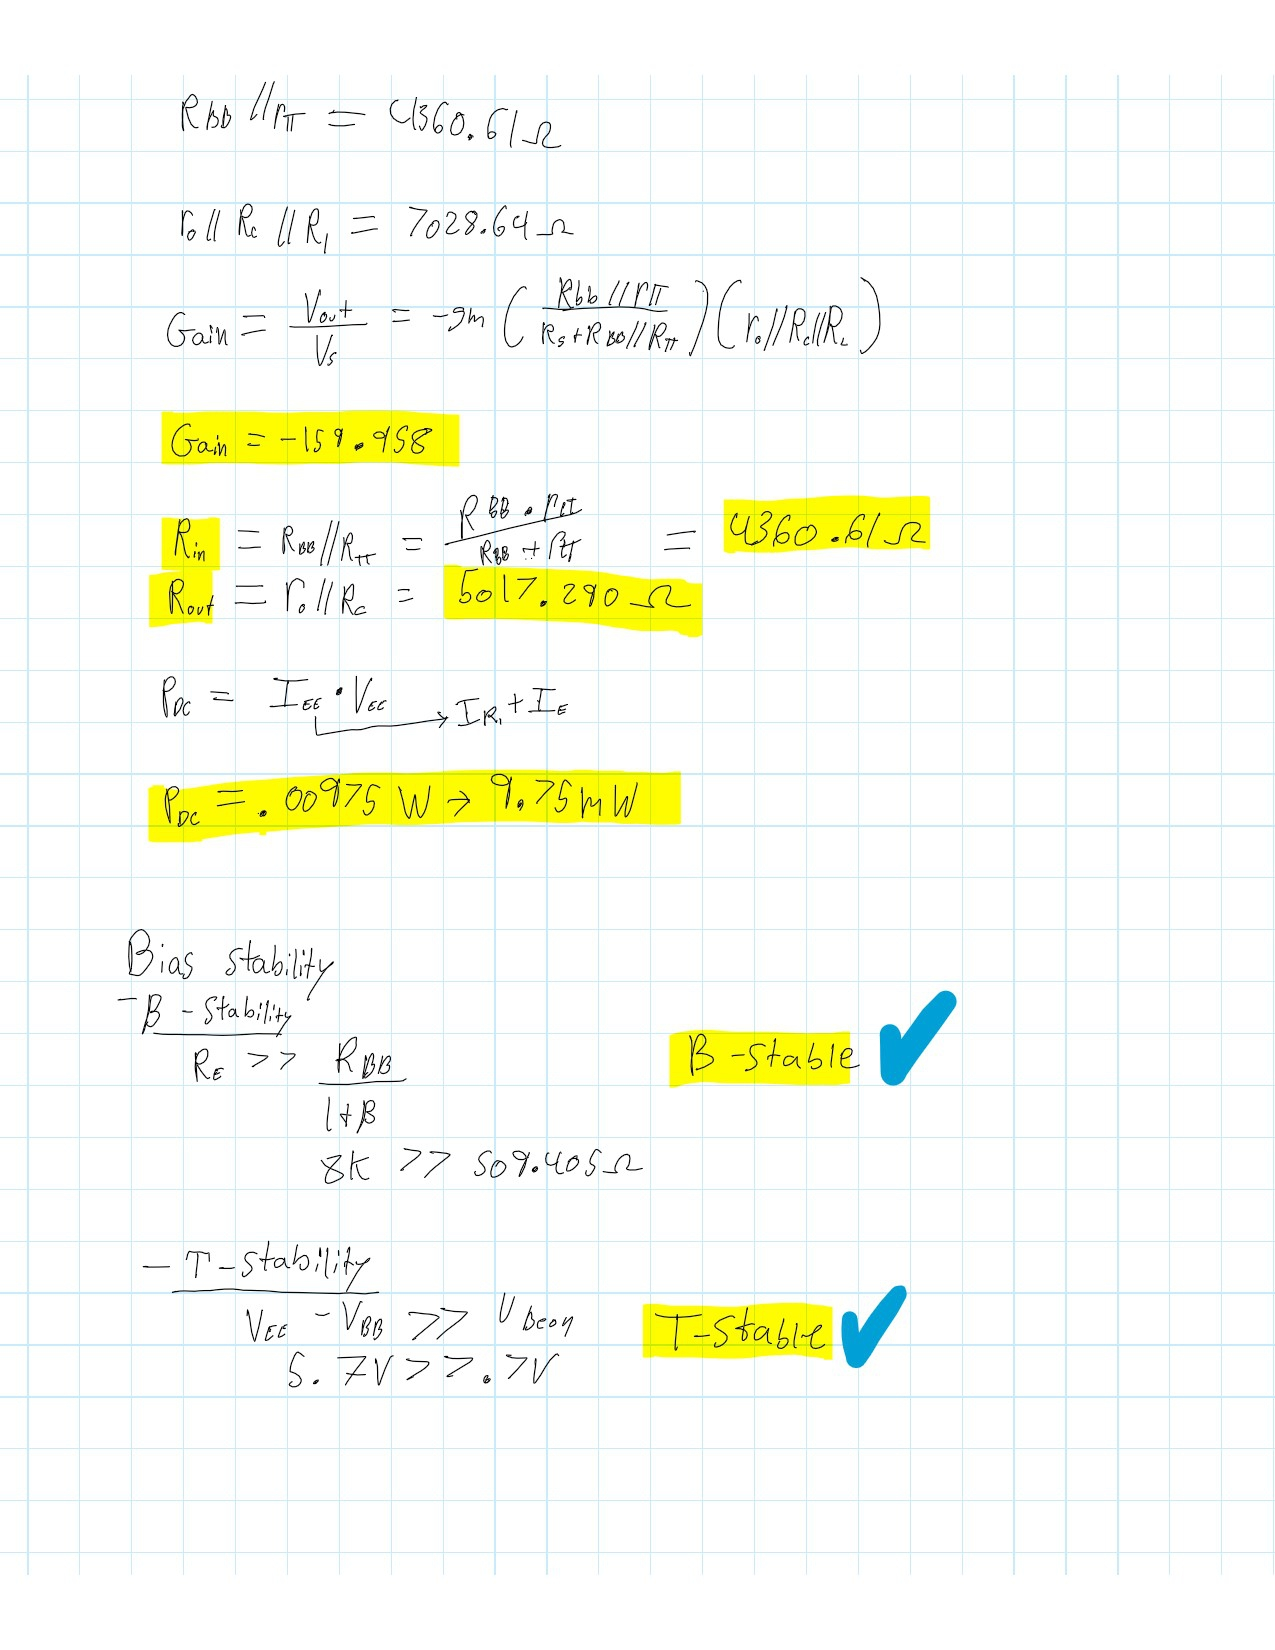 R_BB // r_π = 4360.61 Ω
r_o // R_c // R_L = 7028.64 Ω
Gain = V_out / V_s = -gm ( Rbb // rπ / R_s + R_BB // R_π ) ( r_o // R_c // R_L )
Gain = -159.958
R_in = R_BB // R_π = R_BB · r_π / R_BB + r_π = 4360.61 Ω
R_out = r_o // R_c = 5017.290 Ω
P_DC = I_EE · V_EE → I_R1 + I_E
P_DC = .00975 W → 9.75 mW
Bias stability
- B - Stability
R_E >> R_BB / 1+β
B - Stable ✓
8K >> 509.405 Ω
- T - Stability
V_EE - V_BB >> V_Beon
T-Stable ✓
5.7V >> .7V